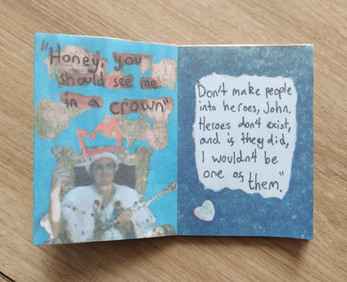 "Honey, you
should see me
in a crown"
Don't make people
into heroes, John.
Heroes don't exist,
and if they did,
I wouldn't be
one of
them."